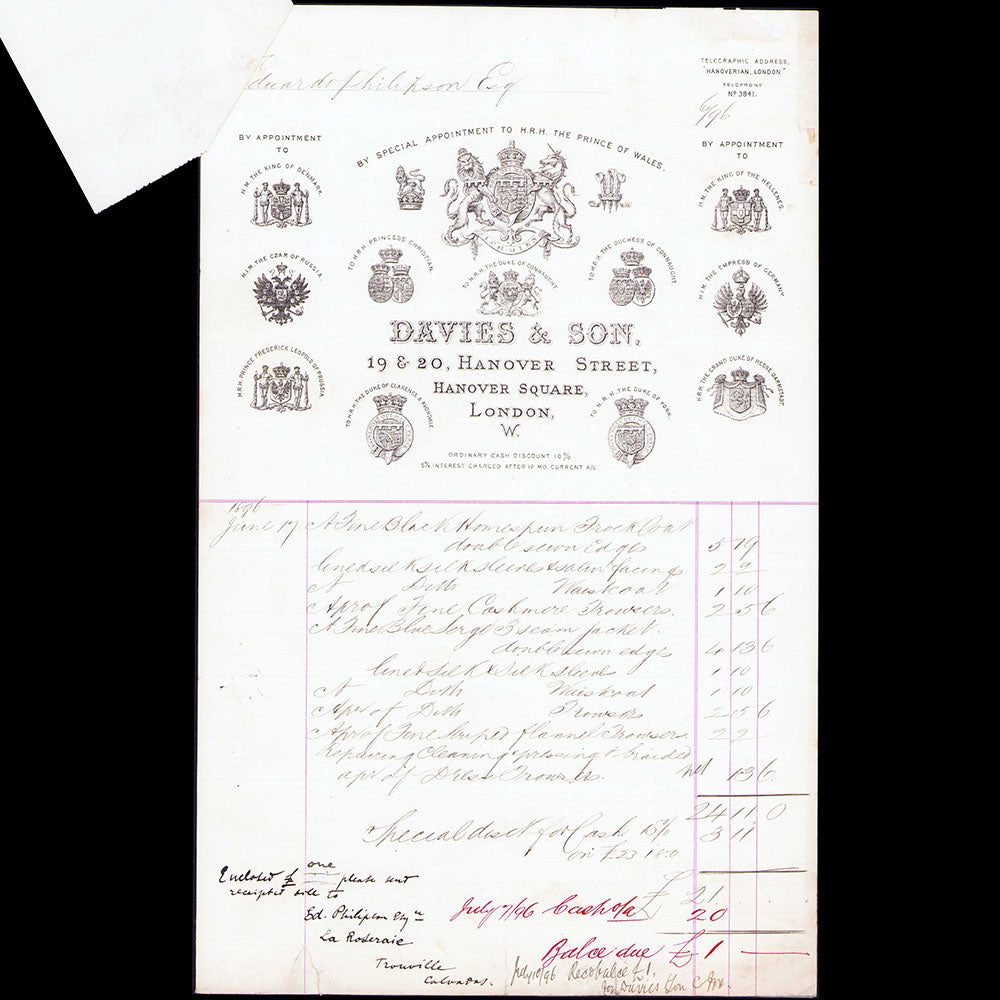 Eduardo Philipson Esq
TELEGRAPHIC ADDRESS,
"HANOVERIAN, LONDON"
TELEPHONE
Nº 3841.
6/96
BY APPOINTMENT
TO
H.M. THE KING OF DENMARK.
H.I.M. THE CZAR OF RUSSIA.
H.R.H. PRINCE FREDERICK LEOPOLD OF PRUSSIA.
BY SPECIAL APPOINTMENT TO H.R.H. THE PRINCE OF WALES.
ICH DIEN
TO H.R.H. PRINCESS CHRISTIAN.
TO H.R.H. THE DUKE OF CONNAUGHT
TO H.R.H. THE DUCHESS OF CONNAUGHT
BY APPOINTMENT
TO
H.M. THE KING OF THE HELLENES.
H.I.M. THE EMPRESS OF GERMANY.
H.R.H. THE GRAND DUKE OF HESSE DARMSTADT.
DAVIES & SON,
19 & 20, HANOVER STREET,
HANOVER SQUARE,
LONDON,
W.
TO H.R.H. THE DUKE OF CLARENCE & AVONDALE
TO H.R.H. THE DUKE OF YORK.
ORDINARY CASH DISCOUNT 10%
5% INTEREST CHARGED AFTER 12 MO. CURRENT A/C.
1896
June 17 A Fine Black Homespun Frock Coat
double sewn Edges 5 19
lined silk silk sleeves & satin facings 2 2 -
A Ditto Waistcoat 1 10
A pr of Fine Cashmere Trowsers. 2 5 6
A Fine Blue Serge 3 seam Jacket.
double sewn edges 4 13 6
lined silk & silk sleeves 1 10
A Ditto Waistcoat 1 10
A pr of Ditto Trowsers 2 5 6
A pr of Fine Striped flannel Trowsers 2 2 -
Repairing Cleaning & pressing & braided
a pr of Dress Trowsers. net 13 6
24 11 0
Special disct for Cash 15% 3 11
on £23 18.0
£ 21
Enclosed £ one please send
receipted bill to
Ed. Philipson Esqre
La Roseraie
Trouville
Calvados.
July 7/96 Cash o/a £ 20
Balce due £ 1 -
July 10/96 Recd balce £1.
for Davies & Son